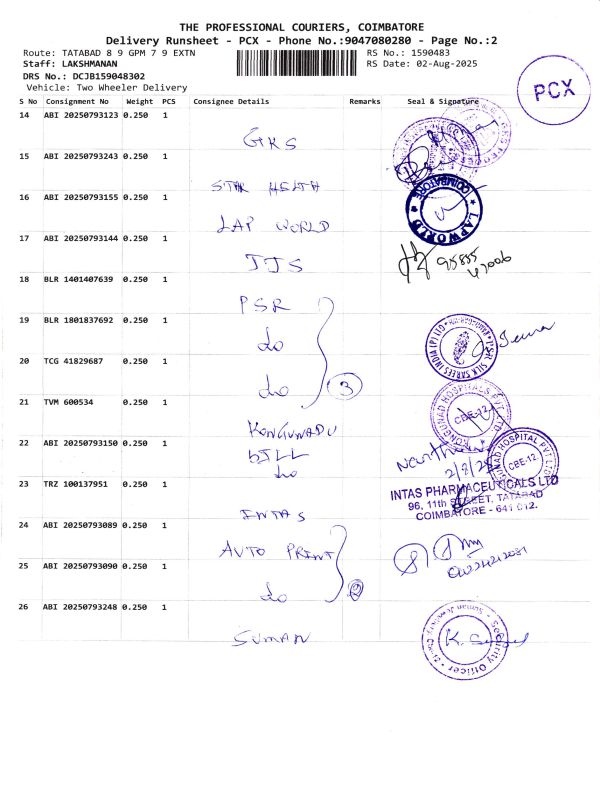 THE PROFESSIONAL COURIERS, COIMBATORE
Delivery Runsheet - PCX - Phone No.:9047080280 - Page No.:2
Route: TATABAD 8 9 GPM 7 9 EXTN
RS No.: 1590483
Staff: LAKSHMANAN
RS Date: 02-Aug-2025
DRS No.: DCJB159048302
Vehicle: Two Wheeler Delivery
PCX
S No Consignment No Weight PCS Consignee Details Remarks Seal & Signature
14 ABI 20250793123 0.250 1
GKS
15 ABI 20250793243 0.250 1
STAR HELTA
16 ABI 20250793155 0.250 1
LAP WORLD
COIMBATORE LAPWORLD
17 ABI 20250793144 0.250 1
JJS
95855
47006
18 BLR 1401407639 0.250 1
PSR
19 BLR 1801837692 0.250 1
do
PSR SILK SAREES INDIA (P) LTD
20 TCG 41829687 0.250 1
do
3
21 TVM 600534 0.250 1
KONGUNADU
KONGUNAD HOSPITALS PVT LTD
CBE-12
22 ABI 20250793150 0.250 1
BILL
do
HOSPITAL PVT LTD
CBE-12
23 TRZ 100137951 0.250 1
INTAS
INTAS PHARMACEUTICALS LTD
96, 11th STREET, TATABAD
COIMBATORE - 641 012.
24 ABI 20250793089 0.250 1
AUTO PRINT
25 ABI 20250793090 0.250 1
do
2
26 ABI 20250793248 0.250 1
SUMAN
Security Officer